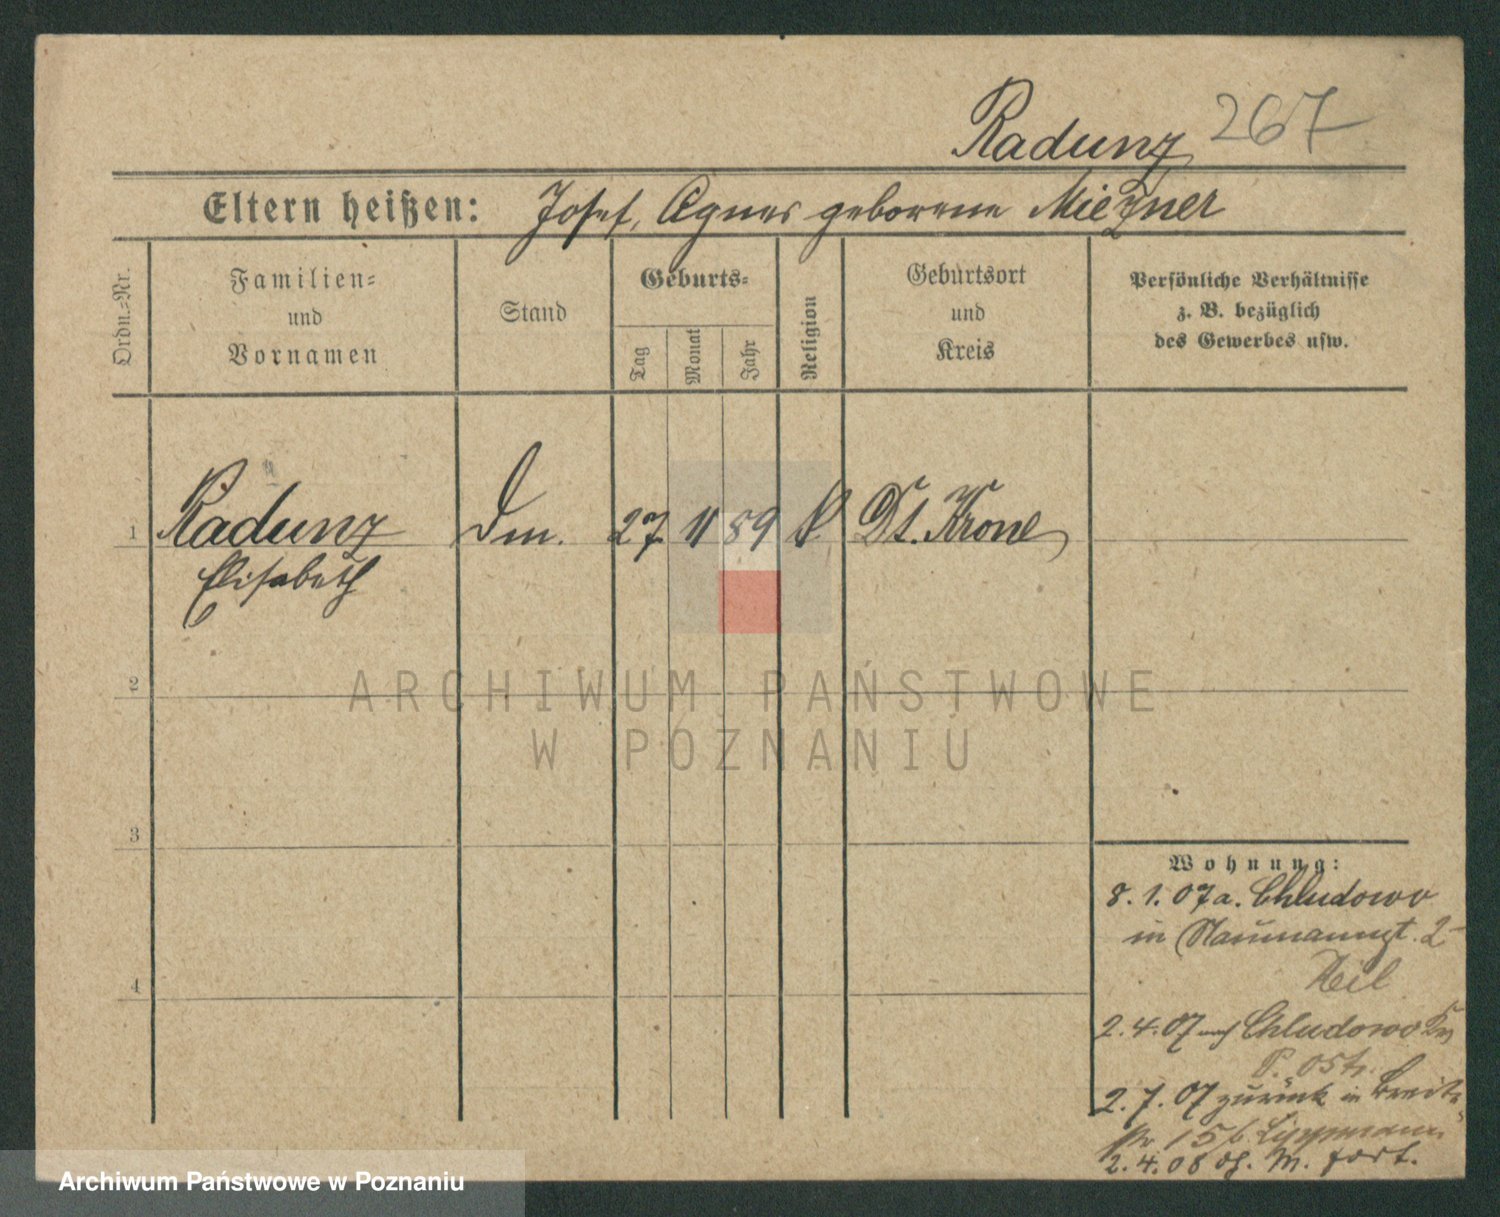 Radunz 267
Eltern heißen: Josef, Agnes geborene Miezner
Ordn.-Nr.
Familien-
und
Vornamen
Stand
Geburts-
Tag
Monat
Jahr
Religion
Geburtsort
und
Kreis
Persönliche Verhältnisse
z. B. bezüglich
des Gewerbes usw.
1 Radunz Dm. 27 11 89 k. Dt. Krone
Elisabeth
2
3
4
Wohnung:
8. 1. 07 a. Chludowo
in Naumannst. 2
2. 4. 07 nach Chludowo Kr.
P. Ost.
2. 7. 07 zurück in Breite-
15 b. Lippmann
2. 4. 08 of. M. fort.
ARCHIWUM PAŃSTWOWE
W POZNANIU
Archiwum Państwowe w Poznaniu